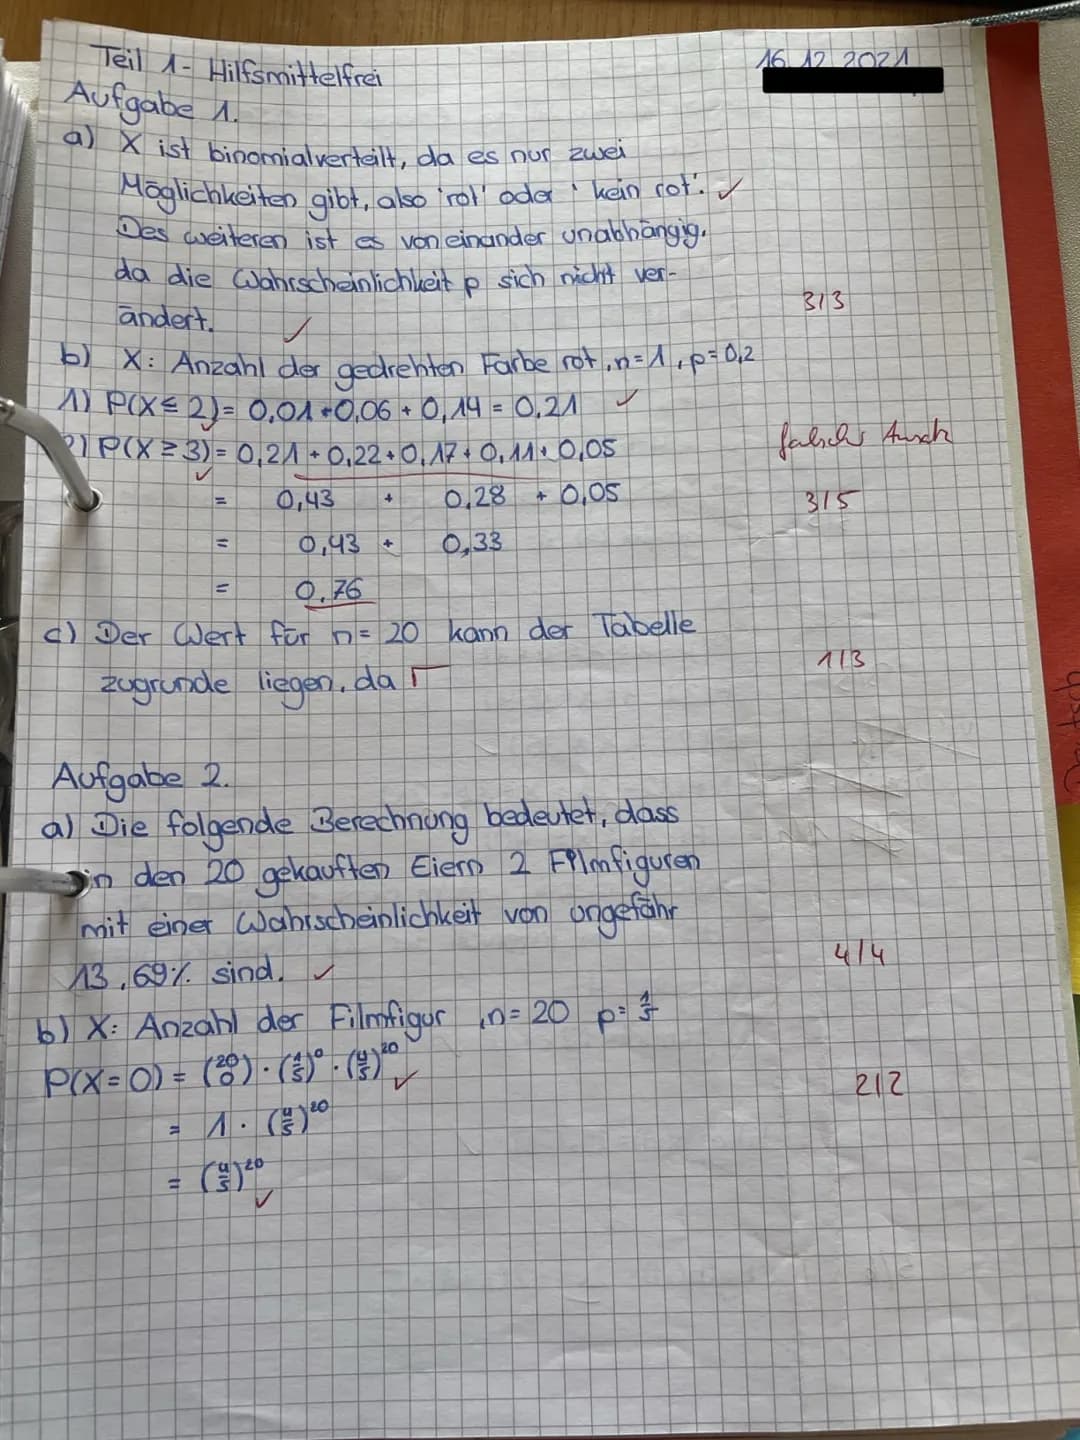 Teil 1 - Hilfsmittelfrei
16.12.2021
Aufgabe 1.
a) X ist binomialverteilt, da es nur zwei
Möglichkeiten gibt, also 'rot' oder 'kein rot'. ✓
Des weiteren ist es voneinander unabhängig,
da die Wahrscheinlichkeit p sich nicht ver-
ändert. ✓
3/3
b) X: Anzahl der gedrehten Farbe rot, n=1, p=0,2
1) P(X≤2)= 0,01+0,06+0,14=0,21 ✓
2) P(X≥3)= 0,21+0,22+0,17+0,11+0,05
falscher
= 0,43 + 0,28 + 0,05
3/5
= 0,43 + 0,33
= 0.76
c) Der Wert für n=20 kann der Tabelle
zugrunde liegen, da Γ
1/3
Aufgabe 2.
a) Die folgende Berechnung bedeutet, dass
in den 20 gekauften Eiern 2 Filmfiguren
mit einer Wahrscheinlichkeit von ungefähr
13,69% sind. ✓
4/4
b) X: Anzahl der Filmfigur, n=20 p=1/5
P(X=0) = (20 0) · (1/5)^0 · (4/5)^20 ✓
2/2
= 1 · (4/5)^20
= (4/5)^20 ✓